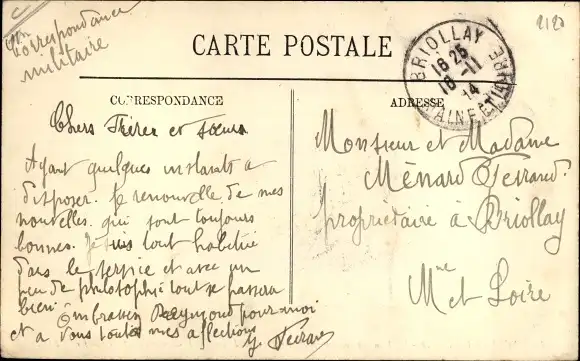 Correspondance
militaire
2120
CARTE POSTALE
BRIOLLAY
18 25
18-11
14
MAINE ET LOIRE
CORRESPONDANCE
ADRESSE
Chers Frère et Sœur
Ayant quelques instants a
disposer. Je renouvelle de mes
nouvelles qui sont toujours
bonnes. Je suis tout habitué
dans le service et avec un
peu de philosophie tout se passera
bien. Embrassez Raymond pour moi
et a vous toutes mes affections
Monsieur et Madame
Ménard Ferrand
propriétaire à Briollay
Mne et Loire